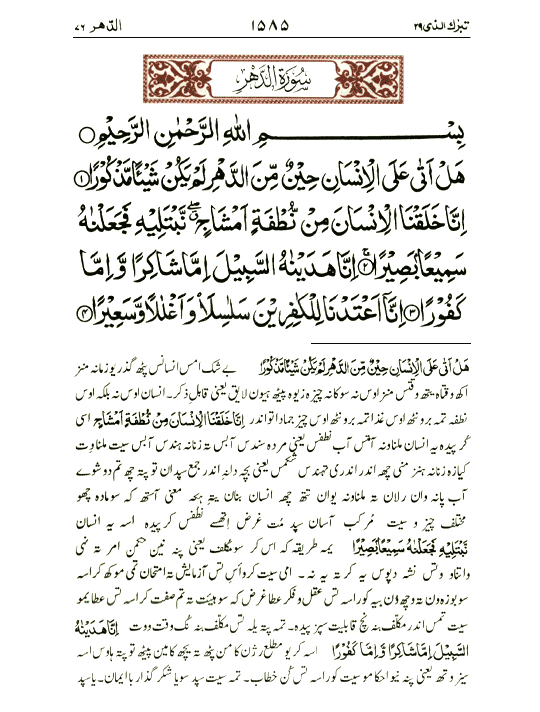 تبٰرك الذی ۲۹ ۱۵۸۵ الدّھر ۷۶
سُوْرَةُ الدَّهْرِ
بِسْمِ اللهِ الرَّحْمٰنِ الرَّحِيْمِ
هَلْ اَتٰى عَلَى الْاِنْسَانِ حِيْنٌ مِّنَ الدَّهْرِ لَمْ يَكُنْ شَيْـًٔا مَّذْكُوْرًا ۱
اِنَّا خَلَقْنَا الْاِنْسَانَ مِنْ نُّطْفَةٍ اَمْشَاجٍ نَّبْتَلِيْهِ فَجَعَلْنٰهُ
سَمِيْعًۢا بَصِيْرًا ۲ اِنَّا هَدَيْنٰهُ السَّبِيْلَ اِمَّا شَاكِرًا وَّ اِمَّا
كَفُوْرًا ۳ اِنَّآ اَعْتَدْنَا لِلْكٰفِرِيْنَ سَلٰسِلَا۟ وَ اَغْلٰلًا وَّ سَعِيْرًا ۴
هَلْ اَتٰى عَلَى الْاِنْسَانِ حِيْنٌ مِّنَ الدَّهْرِ لَمْ يَكُنْ شَيْـًٔا مَّذْكُوْرًا بے شک امس انسانس پٹھ گذریو زمانہ منز
اکھ وقتاہ یتھ وقتس منز اوس نہ سو کانہہ چیز ہ زیوہ پیٹھ ہیون لایق یعنی قابل ذکر۔ انسان اوس نہ بلکہ اوس
نطفہ تمہ برونٹھ اوس غذا تمہ برونٹھ اوس چیز جماداتو اندر اِنَّا خَلَقْنَا الْاِنْسَانَ مِنْ نُّطْفَةٍ اَمْشَاجٍ اسی
کر پیدہ یہ انسان ملناونہ آمتس آب نطفس یعنی مردہ سندس آبس تہ زنانہ ہندس آبس سیت ملناوت
کیازہ زنانہ ہنز منی چھہ اندر اندری تمہندس شکمس یعنی بچہ دانہ اندر جمع سپدان تو پتہ چھہ تم دوشوے
آب پانہ وان رلان تہ ملناونہ یوان تتھ چھہ انسان بنان یتہ ہکہ معنی آستھ کہ سو مادہ چھو
مختلف چیزو سیت مُرکب آسان سپد مُت غرض اتھے نطفس کر پیدہ اسہ یہ انسان
نَّبْتَلِيْهِ فَجَعَلْنٰهُ سَمِيْعًۢا بَصِيْرًا یمہ طریقہ کہ اس کر سو مکلف یعنی پنہ نین حکمن امر تہ نہی
واتناو وتس نشہ دپوس یہ کر تہ یہ نہ۔ امی سیت کرو اس تس آزمایش تہ امتحان تمی موکھ کر اسہ
سو بوزہ ون تہ وچھ وُن بیہ کوراسہ تس عقل و فکر عطا غرض کہ سو ہیئت تہ تم صفت کر اسہ تس عطا یمو
سیت تمس اندر مکلف بنہ نچ قابلیت سپز پیدہ۔ تمہ پتہ یلہ تس مکلف بنہ نُک وقت ووت اِنَّا هَدَيْنٰهُ
السَّبِيْلَ اِمَّا شَاكِرًا وَّ اِمَّا كَفُوْرًا اسہ کریو مطلع رژن کامن پٹھ تہ یچھ کامین پیٹھ تو پتہ ہاوس اسہ
سیز وتھ یعنی پنہ نیو احکامو سیت کوراسہ تس کُن خطاب۔ تمہ سیت سپد سو یا شکر گذار با ایمان۔ یا سپد